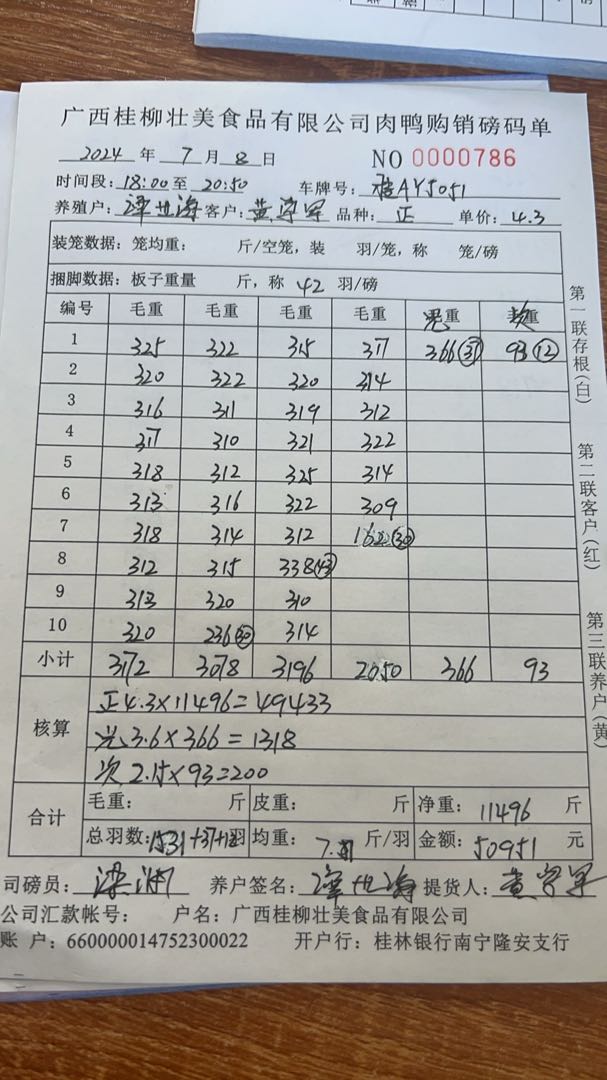 广西桂柳壮美食品有限公司肉鸭购销磅码单
2024 年 7 月 8 日 NO 0000786
时间段: 18:00 至 20:50 车牌号: 桂AY5051
养殖户: 谭世海 客户: 黄宗军 品种: 正 单价: 4.3
装笼数据: 笼均重: 斤/空笼, 装 羽/笼, 称 笼/磅
捆脚数据: 板子重量 斤, 称 42 羽/磅
编号 毛重 毛重 毛重 毛重 光重 重
1 325 322 315 317 366(37) 93(12)
2 320 322 320 314
3 316 311 319 312
4 317 310 321 322
5 318 312 325 314
6 313 316 322 309
7 318 314 312 (30)
8 312 315 338(43)
9 313 320 310
10 320 236 314
小计 3172 3078 3196 2050 366 93
核算
正4.3×11496=49433
光3.6×366=1318
次2.15×93=200
合计
毛重: 斤 皮重: 斤 净重: 11496 斤
总羽数: 1531+37+12羽 均重: 斤/羽 金额: 50951 元
司磅员: 梁 养户签名: 谭世海 提货人: 黄宗军
公司汇款帐号: 户名: 广西桂柳壮美食品有限公司
账 户: 660000014752300022 开户行: 桂林银行南宁隆安支行
第一联存根(白)
第二联客户(红)
第三联养户(黄)